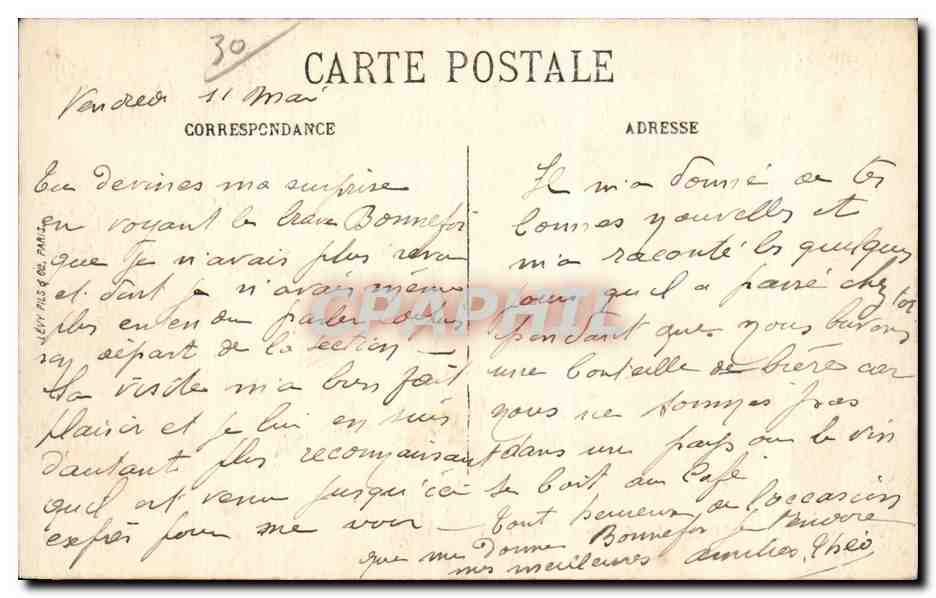 30
CARTE POSTALE
Vendredi 11 Mai
CORRESPONDANCE
Tu devines ma surprise
en voyant le brave Bonnefoi
que je n'avais plus revu
et dont je n'avais même
plus entendu parler depuis
son départ de la section —
Sa visite m'a bien fait
plaisir et je lui en suis
d'autant plus reconnaissant
qu'il est venu jusqu'ici
exprès pour me voir —
ADRESSE
Il m'a donné de tes
bonnes nouvelles et
m'a raconté les quelques
jours qu'il a passé chez toi
pendant que nous buvons
une bouteille de bière car
nous ne sommes pas
dans un pays où le vin
se boit au Café
Tout heureux de l'occasion
que me donne Bonnefoi je t'envoie
mes meilleures amitiés. Théo
LEVY FILS & CIE, PARIS
CPAPHIL